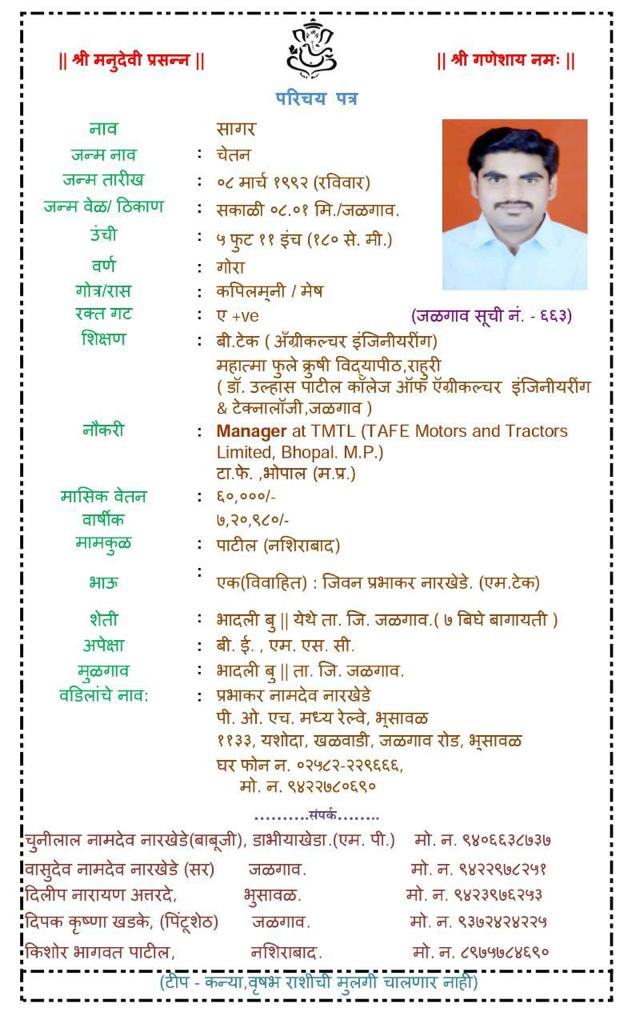 || श्री मनुदेवी प्रसन्न ||
|| श्री गणेशाय नमः ||
परिचय पत्र
नाव सागर
जन्म नाव : चेतन
जन्म तारीख : ०८ मार्च १९९२ (रविवार)
जन्म वेळ/ ठिकाण : सकाळी ०८.०१ मि./जळगाव.
उंची : ५ फुट ११ इंच (१८० से. मी.)
वर्ण : गोरा
गोत्र/रास : कपिलमूनी / मेष
रक्त गट : ए +ve (जळगाव सूची नं. - ६६३)
शिक्षण : बी.टेक ( अॅग्रीकल्चर इंजिनीयरींग)
महात्मा फुले क्रुषी विद्यापीठ,राहुरी
( डॉ. उल्हास पाटील कॉलेज ऑफ ऍग्रीकल्चर इंजिनीयरींग
& टेक्नालॉजी,जळगाव )
नौकरी : Manager at TMTL (TAFE Motors and Tractors
Limited, Bhopal. M.P.)
टा.फे. ,भोपाल (म.प्र.)
मासिक वेतन : ६०,०००/-
वार्षीक : ७,२०,९८०/-
मामकुळ : पाटील (नशिराबाद)
भाऊ : एक(विवाहित) : जिवन प्रभाकर नारखेडे. (एम.टेक)
शेती : भादली बु || येथे ता. जि. जळगाव.( ७ बिघे बागायती )
अपेक्षा : बी. ई. , एम. एस. सी.
मुळगाव : भादली बु || ता. जि. जळगाव.
वडिलांचे नाव: : प्रभाकर नामदेव नारखेडे
पी. ओ. एच. मध्य रेल्वे, भूसावळ
११३३, यशोदा, खळवाडी, जळगाव रोड, भूसावळ
घर फोन न. ०२५८२-२२९६६६,
मो. न. ९४२२७८०६९०
..........संपर्क........
चुनीलाल नामदेव नारखेडे(बाबूजी), डाभीयाखेडा.(एम. पी.) मो. न. ९४०६६३८७३७
वासुदेव नामदेव नारखेडे (सर) जळगाव. मो. न. ९४२२९७८२५१
दिलीप नारायण अत्तरदे, भुसावळ. मो. न. ९४२३९७६२५३
दिपक कृष्णा खडके, (पिंटूशेठ) जळगाव. मो. न. ९३७२४२४२२५
किशोर भागवत पाटील, नशिराबाद. मो. न. ८९७५७८४६९०
(टीप - कन्या,वृषभ राशीची मुलगी चालणार नाही)